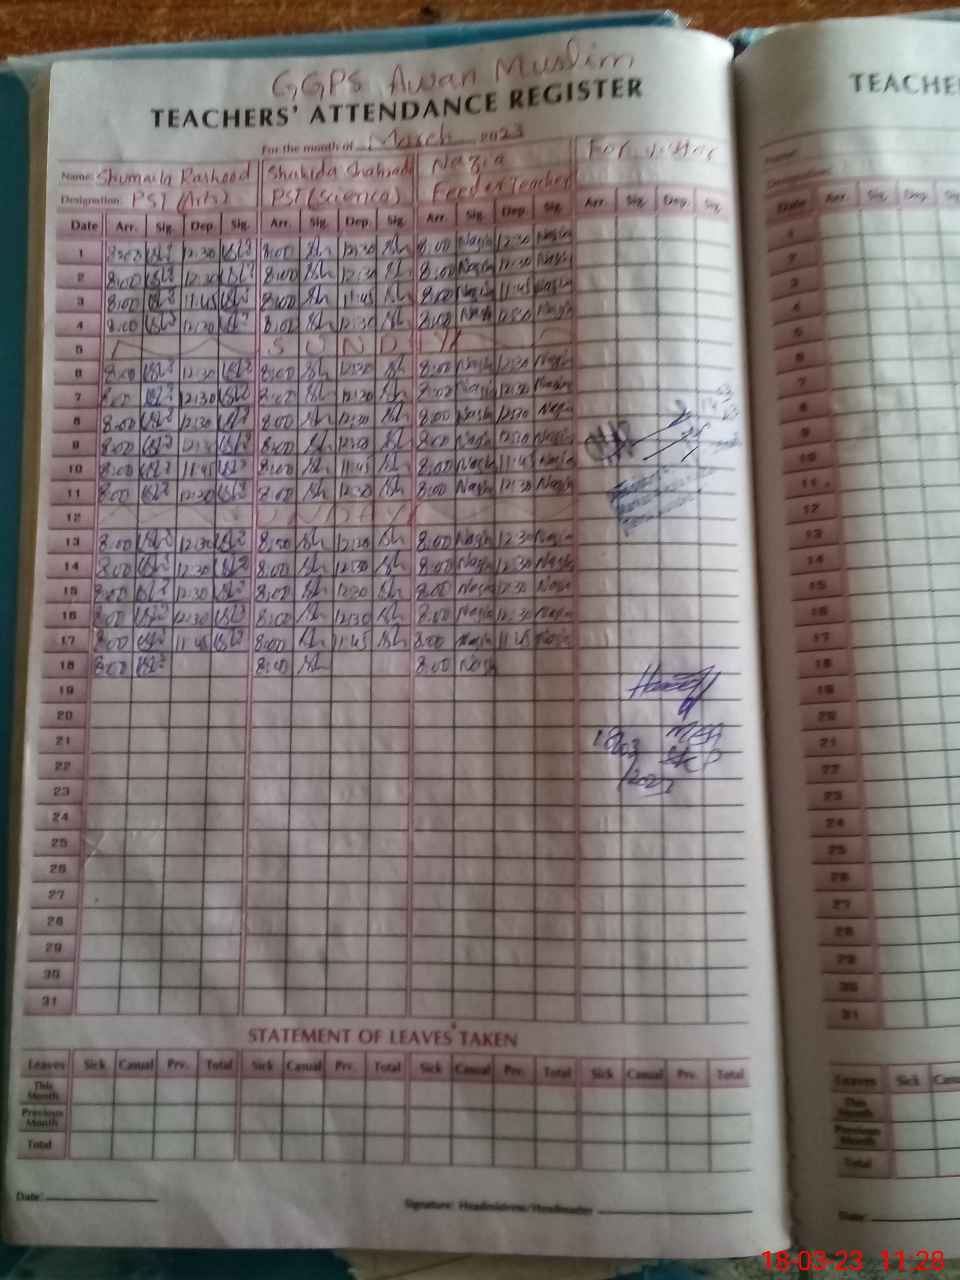 GGPS Awan Muslim
TEACHERS' ATTENDANCE REGISTER
For the month of March 2023
Name: Shumaila Rasheed Shahida Shahzadi Nazia For visitor
Designation: PST (Arts) PST (Science) Feeder Teacher
Date Arr. Sig. Dep. Sig. Arr. Sig. Dep. Sig. Arr. Sig. Dep. Sig. Arr. Sig. Dep. Sig.
1 8:00 12:30 8:00 Sh 12:30 Sh 8:00 Nazia 12:30 Nazia
2 8:00 12:30 8:00 Sh 12:30 Sh 8:00 Nazia 12:30 Nazia
3 8:00 11:45 8:00 Sh 11:45 Sh 8:00 Nazia 11:45 Nazia
4 8:00 12:30 8:00 Sh 12:30 Sh 8:00 Nazia 12:30 Nazia
5 SUNDAY
6 8:00 12:30 8:00 Sh 12:30 Sh 8:00 Nazia 12:30 Nazia
7 8:00 12:30 8:00 Sh 12:30 Sh 8:00 Nazia 12:30 Nazia
8 8:00 12:30 8:00 Sh 12:30 Sh 8:00 Nazia 12:30 Nazia
9 8:00 12:30 8:00 Sh 12:30 Sh 8:00 Nazia 12:30 Nazia
10 8:00 11:45 8:00 Sh 11:45 Sh 8:00 Nazia 11:45 Nazia
11 8:00 12:30 8:00 Sh 12:30 Sh 8:00 Nazia 12:30 Nazia
12 SUNDAY
13 8:00 12:30 8:00 Sh 12:30 Sh 8:00 Nazia 12:30 Nazia
14 8:00 12:30 8:00 Sh 12:30 Sh 8:00 Nazia 12:30 Nazia
15 8:00 12:30 8:00 Sh 12:30 Sh 8:00 Nazia 12:30 Nazia
16 8:00 12:30 8:00 Sh 12:30 Sh 8:00 Nazia 12:30 Nazia
17 8:00 11:45 8:00 Sh 11:45 Sh 8:00 Nazia 11:45 Nazia
18 8:00 8:00 Sh 8:00 Nazia
19
20
21 MEA
22 18/03/2023
23
24
25
26
27
28
29
30
31
STATEMENT OF LEAVES TAKEN
Leaves Sick Casual Prv. Total Sick Casual Prv. Total Sick Casual Prv. Total Sick Casual Prv. Total
This Month
Previous Month
Total
Date:
Signature: Headmistress/Headmaster
TEACHE
Name:
Designation:
Date Arr. Sig. Dep. Sig.
1
2
3
4
5
6
7
8
9
10
11
12
13
14
15
16
17
18
19
20
21
22
23
24
25
26
27
28
29
30
31
Leaves Sick Cas
This Month
Previous Month
Total
Date:
18-03-23 11:28